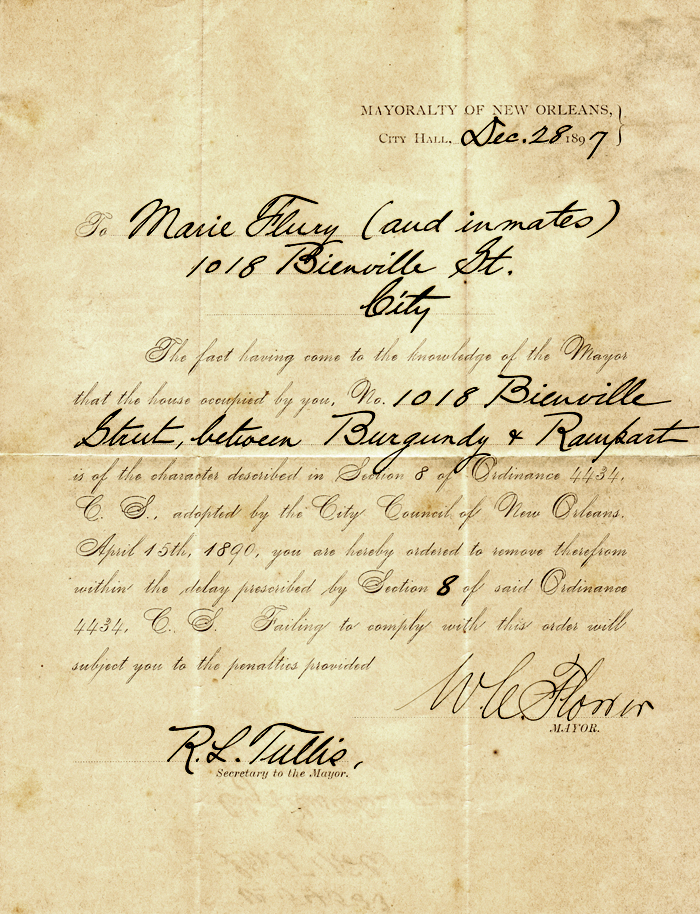 MAYORALTY OF NEW ORLEANS,
CITY HALL, Dec. 28 1897
To Marie Flury (and inmates)
1018 Bienville St.
City
The fact having come to the knowledge of the Mayor
that the house occupied by you, No. 1018 Bienville
Street, between Burgundy & Rampart
is of the character described in Section 8 of Ordinance 4434,
C. S., adopted by the City Council of New Orleans,
April 15th, 1890, you are hereby ordered to remove therefrom
within the delay prescribed by Section 8 of said Ordinance
4434, C. S. Failing to comply with this order will
subject you to the penalties provided
W. C. Flower
MAYOR.
R. L. Tullis,
Secretary to the Mayor.